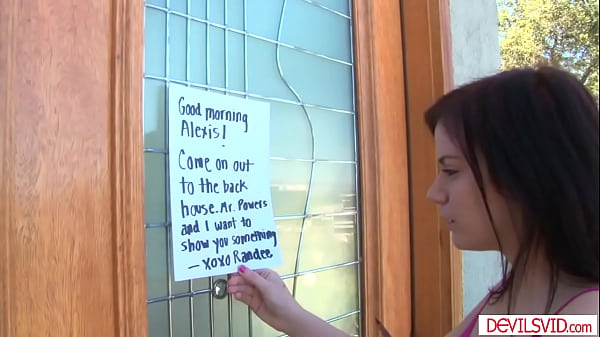 Good morning
Alexis!
Come on out
to the back
house. Mr. Powers
and I want to
show you something
— XOXO Randee
DEVILSVID.COM